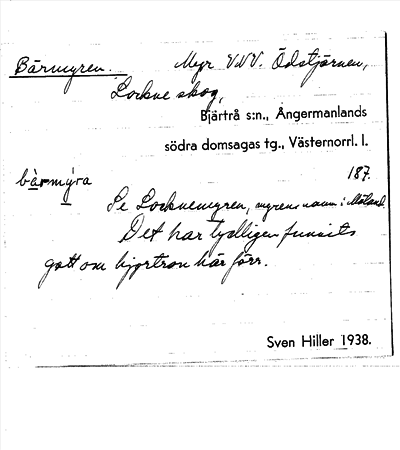 Bärmyren. Myr VNV. Ödstjärnen,
Lockne skog,
Bjärtrå s:n., Ångermanlands
södra domsagas tg., Västernorrl. l.
187.
bärmýra
Se Locknemyren, myrens namn i Mäland.
Det har tydligen funnits
gott om hjortron här förr.
Sven Hiller 1938.